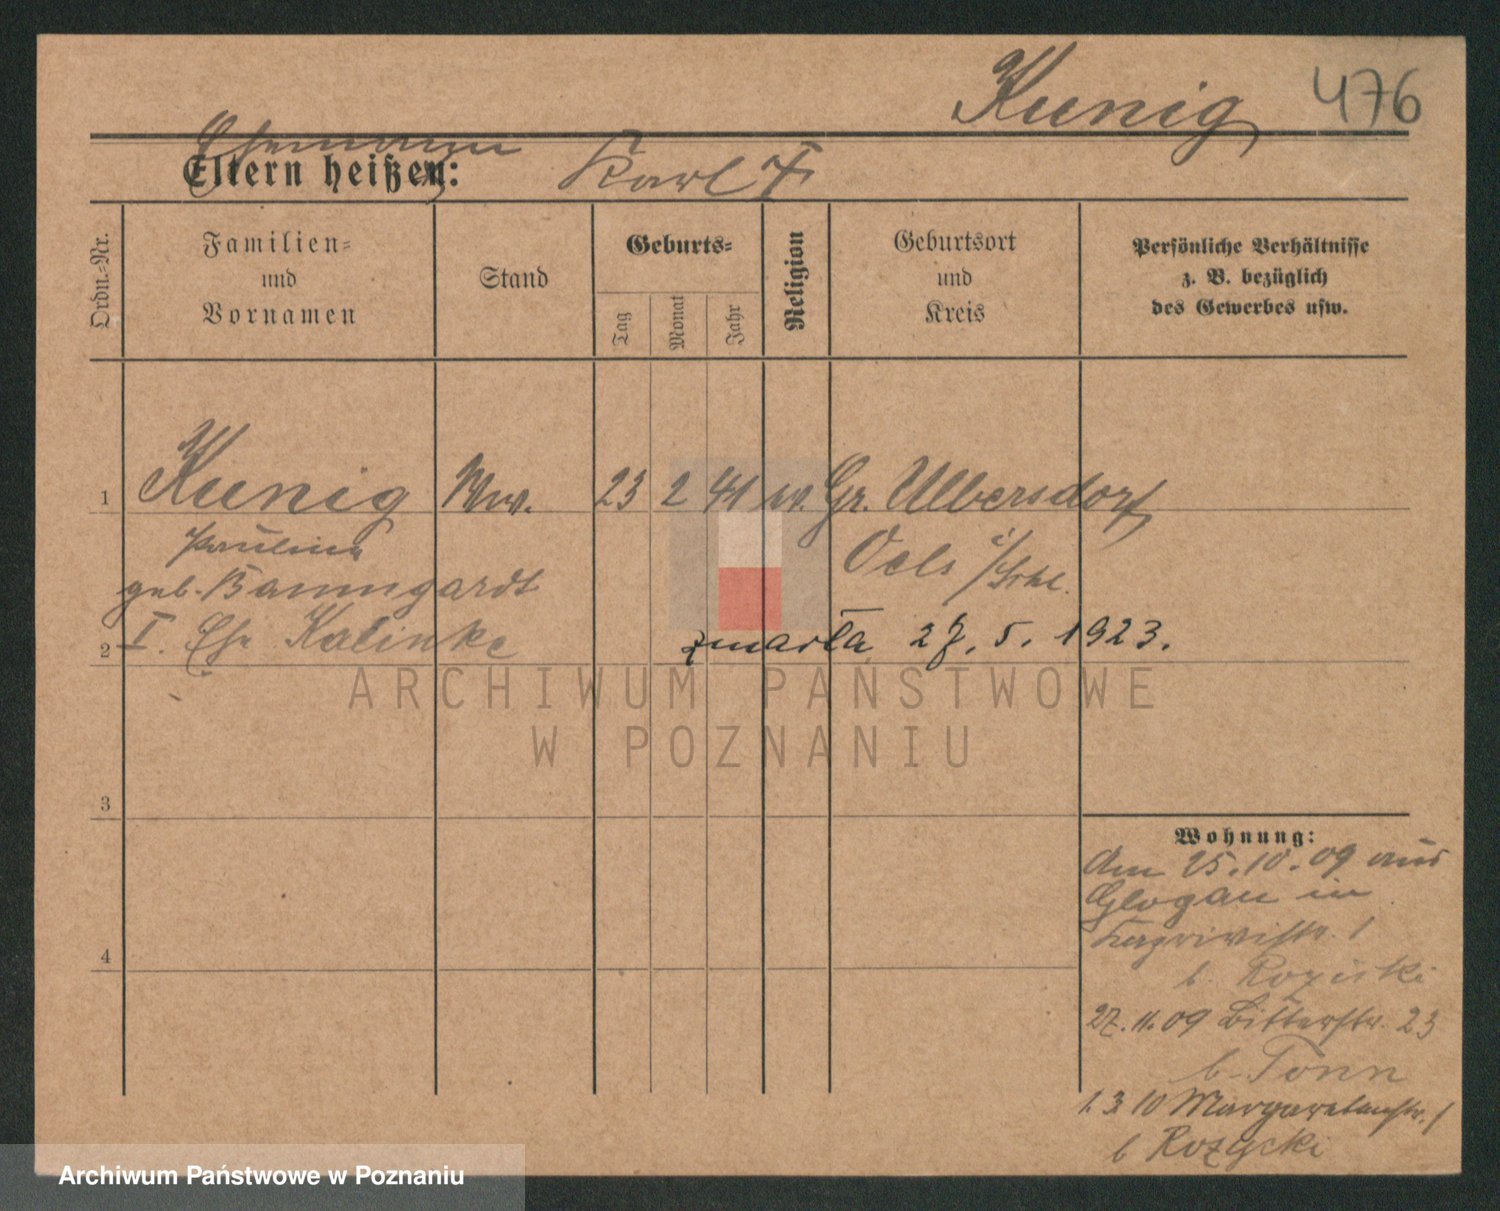 Kunig 476
Ehemann
Eltern heißen: Karl †
Ordn.-Nr.
Familien-
und
Vornamen
Stand
Geburts-
Tag
Monat
Jahr
Religion
Geburtsort
und
Kreis
Persönliche Verhältnisse
z. B. bezüglich
des Gewerbes usw.
1 Kunig Ww. 23 2 41 ev. Gr. Ulbersdorf
Pauline Oels i/Schl.
geb. Baumgardt
2 I. Ehe Kalinke zmarła 27. 5. 1923.
ARCHIWUM PAŃSTWOWE
W POZNANIU
3
4
Wohnung:
Am 25.10.09 aus
Glogau in
1
b.
27.11.09 Bitterstr. 23
b. Tonn
1.3.10 Margaretenstr. 1
b Rozycki
Archiwum Państwowe w Poznaniu